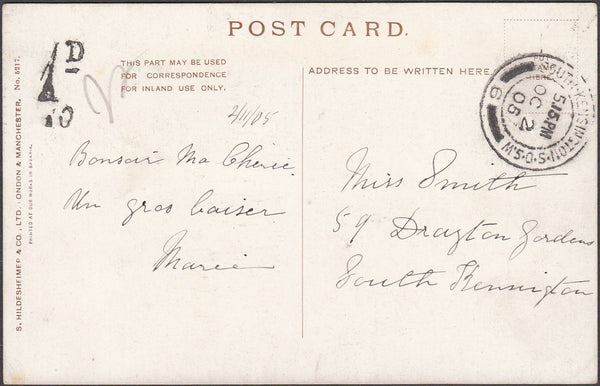 POST CARD.
1D
THIS PART MAY BE USED
FOR CORRESPONDENCE
FOR INLAND USE ONLY.
ADDRESS TO BE WRITTEN HERE
SOUTH KENSINGTON·S.O·S.W
5.15.PM
OC 2
05
6
2/11/05
Bonsoir Ma Cherie
Un gros baiser
Marie
Miss Smith
59 Drayton Gardens
South Kensington
S. HILDESHEIMER & CO., LTD. LONDON & MANCHESTER. No. 5217.
PRINTED AT OUR WORKS IN BAVARIA.